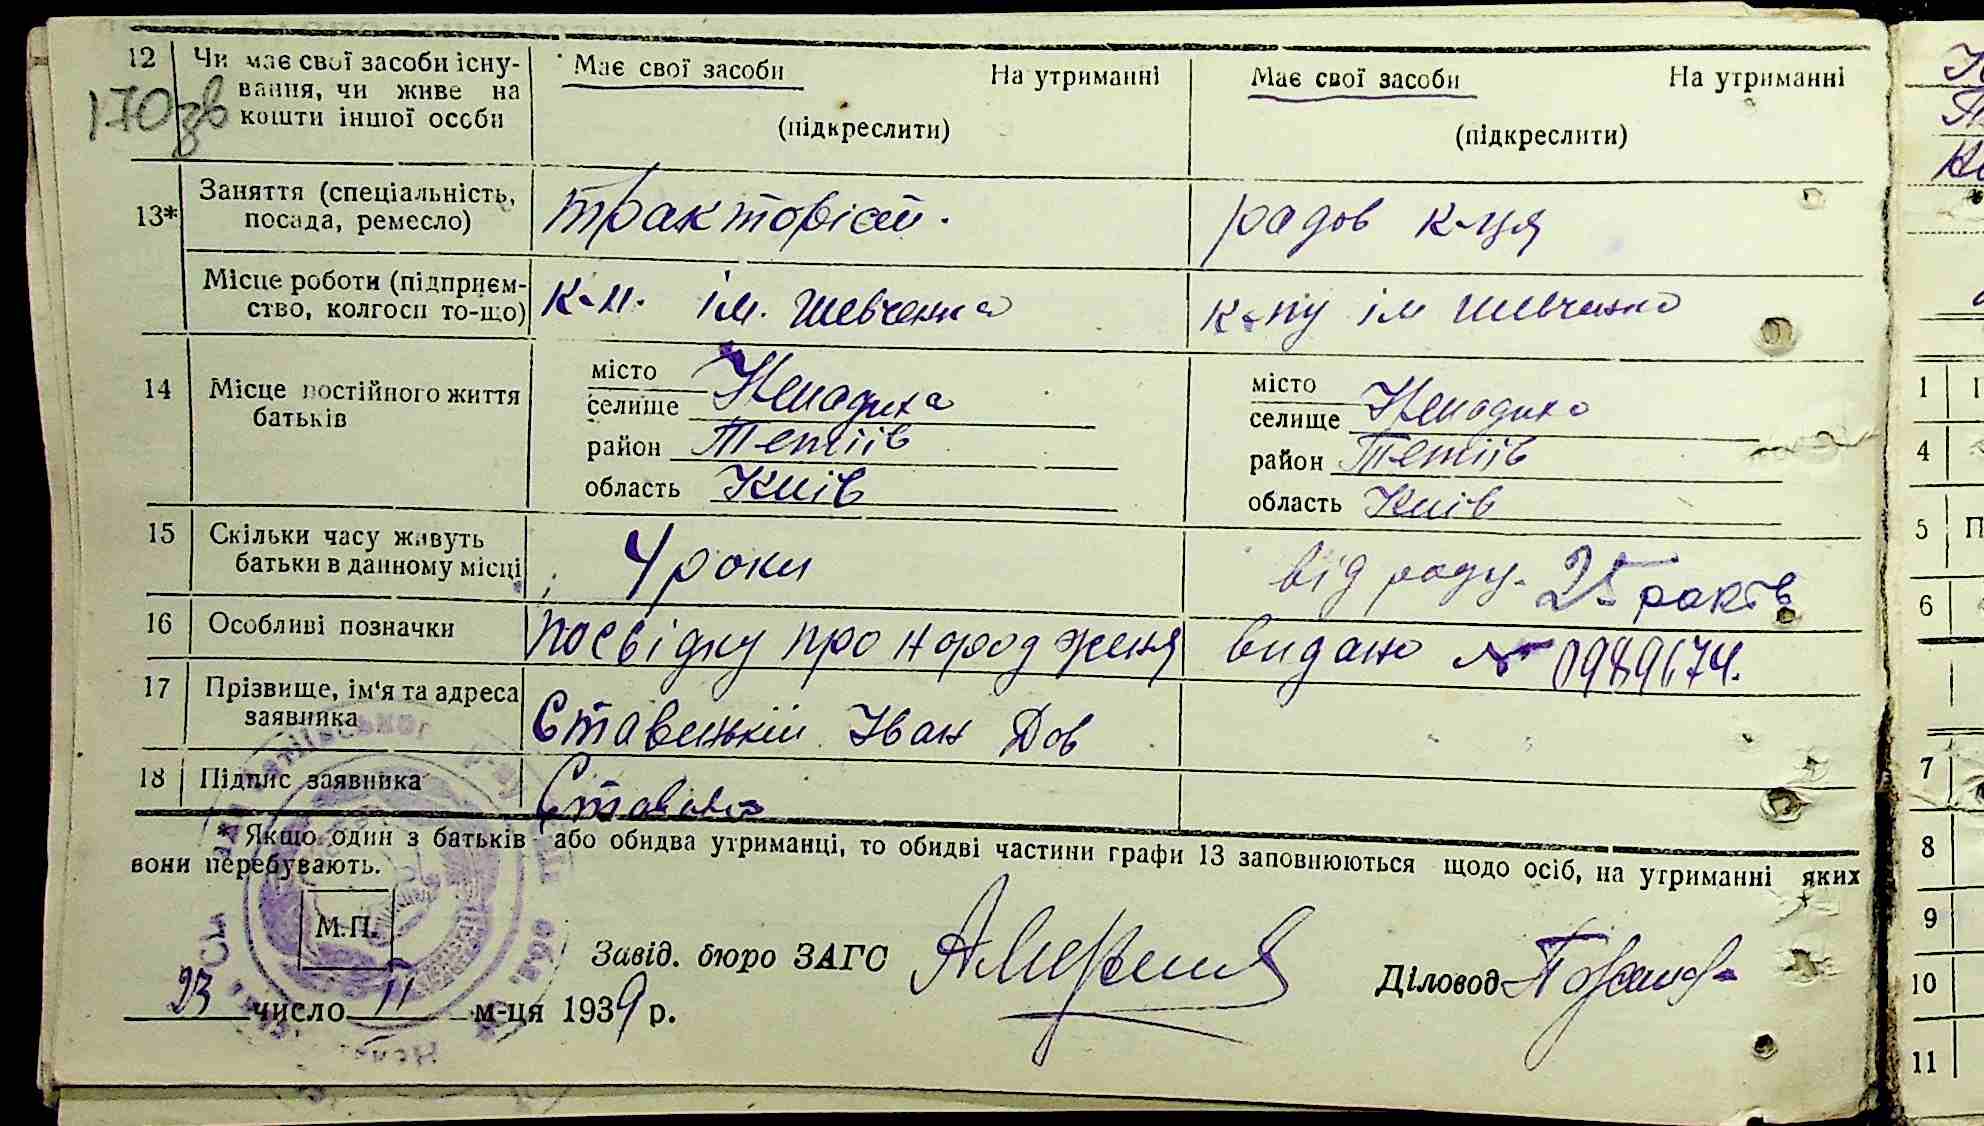 12 Чи має свої засоби існу- Має свої засоби На утриманні Має свої засоби На утриманні
вання, чи живе на
170зв кошти іншої особи (підкреслити) (підкреслити)
13* Заняття (спеціальність, посада, ремесло) тракторіст. радов к-ця
Місце роботи (підприєм- к-п. ім. Шевченка к-пу ім Шевченко
ство, колгосп то-що)
14 Місце постійного життя батьків
місто Ненадиха місто Ненадиха
селище селище
район Тетіїв район Тетіїв
область Київ область Київ
15 Скільки часу живуть 4 роки від роду. 25 років
батьки в данному місці
16 Особливі позначки посвідку про народженя видано №
17 Прізвище, ім'я та адреса Ставицькій Іван Дов
заявника
18 Підпис заявника
* Якщо один з батьків або обидва утриманці, то обидві частини графи 13 заповнюються щодо осіб, на утриманні яких
вони перебувають.
М.П.
Завід. бюро ЗАГС Діловод
23 число II м-ця 1939 р.
1
4
5 П
6
7
8
9
10
11